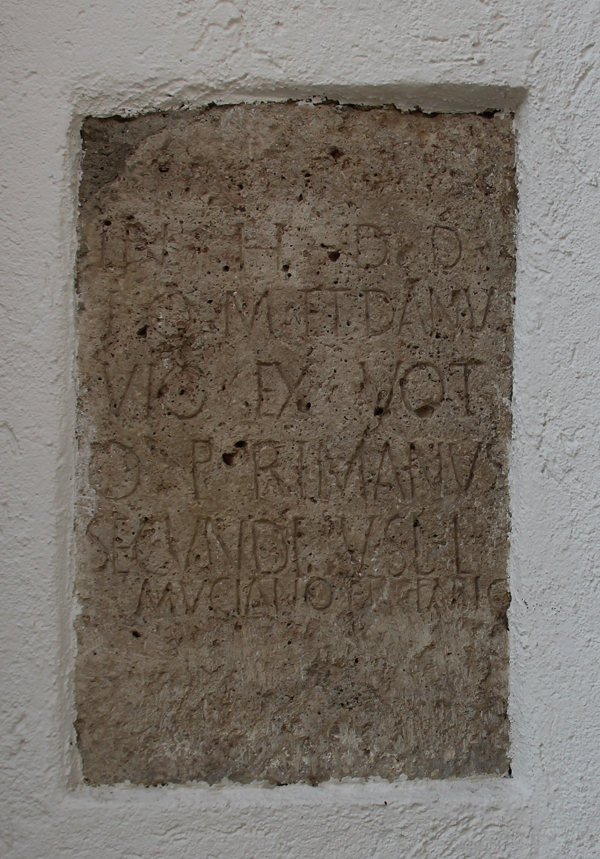 IN H D D
I O M ET DANV
VIO EX VOT
O P RIMANVS
SECVNDI VSLL
MVCIANO ET FABIO